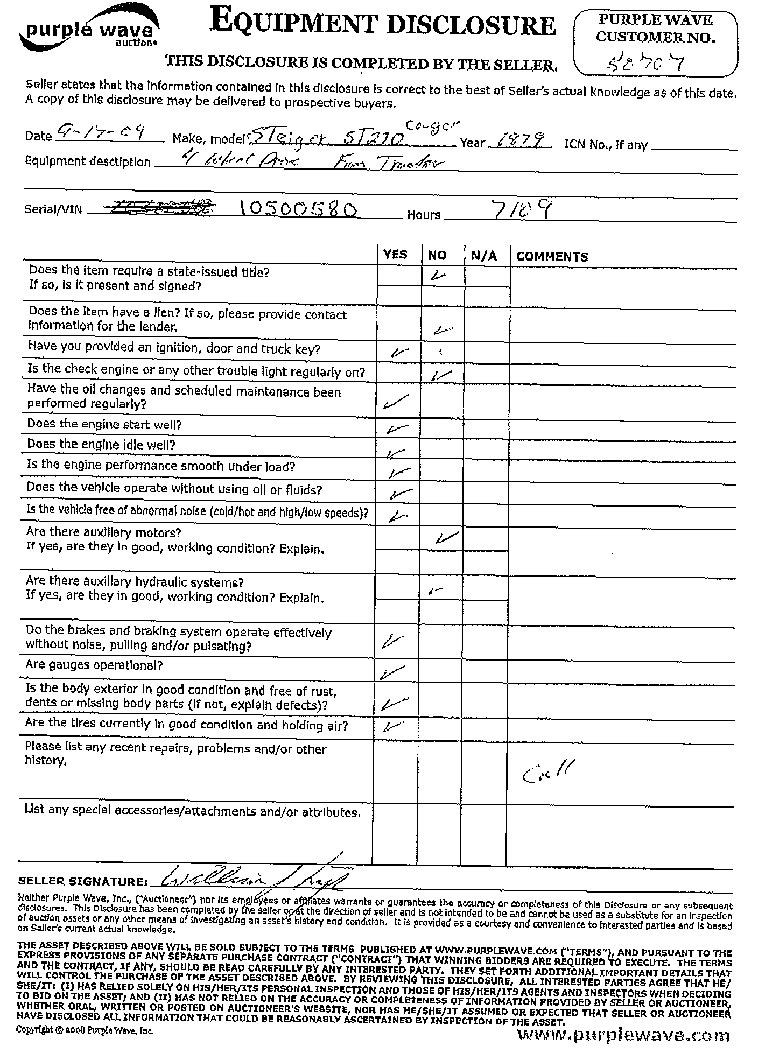 purple wave
auction®
EQUIPMENT DISCLOSURE
THIS DISCLOSURE IS COMPLETED BY THE SELLER.
PURPLE WAVE
CUSTOMER NO.
58707
Seller states that the information contained in this disclosure is correct to the best of Seller's actual knowledge as of this date.
A copy of this disclosure may be delivered to prospective buyers.
Date 9-17-09 Make, model: STeiger ST270 Cougar Year 1979 ICN No., if any
Equipment description 4 Wheel Drive Farm Tractor
Serial/VIN 10500580 Hours 7109
YES NO N/A COMMENTS
Does the item require a state-issued title?
If so, is it present and signed?
Does the item have a lien? If so, please provide contact
information for the lender.
Have you provided an ignition, door and truck key?
Is the check engine or any other trouble light regularly on?
Have the oil changes and scheduled maintenance been
performed regularly?
Does the engine start well?
Does the engine idle well?
Is the engine performance smooth under load?
Does the vehicle operate without using oil or fluids?
Is the vehicle free of abnormal noise (cold/hot and high/low speeds)?
Are there auxiliary motors?
If yes, are they in good, working condition? Explain.
Are there auxiliary hydraulic systems?
If yes, are they in good, working condition? Explain.
Do the brakes and braking system operate effectively
without noise, pulling and/or pulsating?
Are gauges operational?
Is the body exterior in good condition and free of rust,
dents or missing body parts (if not, explain defects)?
Are the tires currently in good condition and holding air?
Please list any recent repairs, problems and/or other
history.
Call
List any special accessories/attachments and/or attributes.
SELLER SIGNATURE: William
Neither Purple Wave, Inc., ("Auctioneer") nor its employees or affiliates warrants or guarantees the accuracy or completeness of this Disclosure or any subsequent
disclosures. This Disclosure has been completed by the seller or at the direction of seller and is not intended to be and cannot be used as a substitute for an inspection
of auction assets or any other means of investigating an asset's history and condition. It is provided as a courtesy and convenience to interested parties and is based
on Seller's current actual knowledge.
THE ASSET DESCRIBED ABOVE WILL BE SOLD SUBJECT TO THE TERMS PUBLISHED AT WWW.PURPLEWAVE.COM ("TERMS"), AND PURSUANT TO THE
EXPRESS PROVISIONS OF ANY SEPARATE PURCHASE CONTRACT ("CONTRACT") THAT WINNING BIDDERS ARE REQUIRED TO EXECUTE. THE TERMS
AND THE CONTRACT, IF ANY, SHOULD BE READ CAREFULLY BY ANY INTERESTED PARTY. THEY SET FORTH ADDITIONAL IMPORTANT DETAILS THAT
WILL CONTROL THE PURCHASE OF THE ASSET DESCRIBED ABOVE. BY REVIEWING THIS DISCLOSURE, ALL INTERESTED PARTIES AGREE THAT HE/
SHE/IT: (I) HAS RELIED SOLELY ON HIS/HER/ITS PERSONAL INSPECTION AND THOSE OF HIS/HER/ITS AGENTS AND INSPECTORS WHEN DECIDING
TO BID ON THE ASSET; AND (II) HAS NOT RELIED ON THE ACCURACY OR COMPLETENESS OF INFORMATION PROVIDED BY SELLER OR AUCTIONEER,
WHETHER ORAL, WRITTEN OR POSTED ON AUCTIONEER'S WEBSITE, NOR HAS HE/SHE/IT ASSUMED OR EXPECTED THAT SELLER OR AUCTIONEER
HAVE DISCLOSED ALL INFORMATION THAT COULD BE REASONABLY ASCERTAINED BY INSPECTION OF THE ASSET.
Copyright © 2008 Purple Wave, Inc.
www.purplewave.com